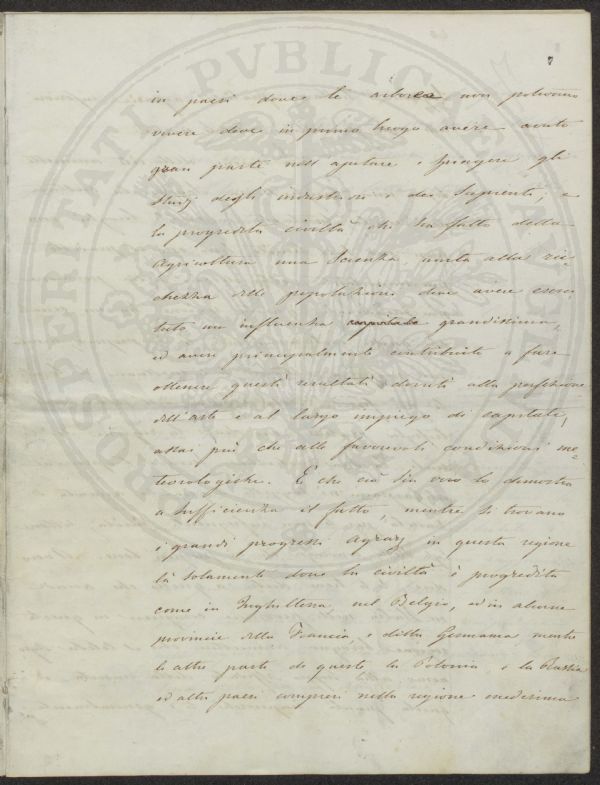 7
in paesi dove le arboree non potevano
vivere deve in primo luogo avere avuto
gran parte nell'ajutare e spingere gli
studj degli industriosi e dei sapienti; e
la progredita civiltà che ha fatto della
Agricoltura una Scienza, unita alla ric=
chezza della popolazione deve avere eserci
tato un influenza capitale grandissima,
ed avere principalmente contribuito a fare
ottenere questi resultati dovuti alla perfezione
dell'arte e al largo impiego di capitali,
assai più che alle favorevoli condizioni me=
teorologiche. E che ciò sia vero lo dimostra
a sufficienza il fatto, mentre si trovano
i grandi progressi agrarj in questa regione
là solamente dove la civiltà è progredita
come in Inghilterra, nel Belgio, ed in alcune
provincie della Francia, e della Germania, mentre
le altre parti di queste la Polonia, e la Russia
ed altri paesi compresi nella regione medesima
PROSPERITATI PVBLICAE AVGENDAE